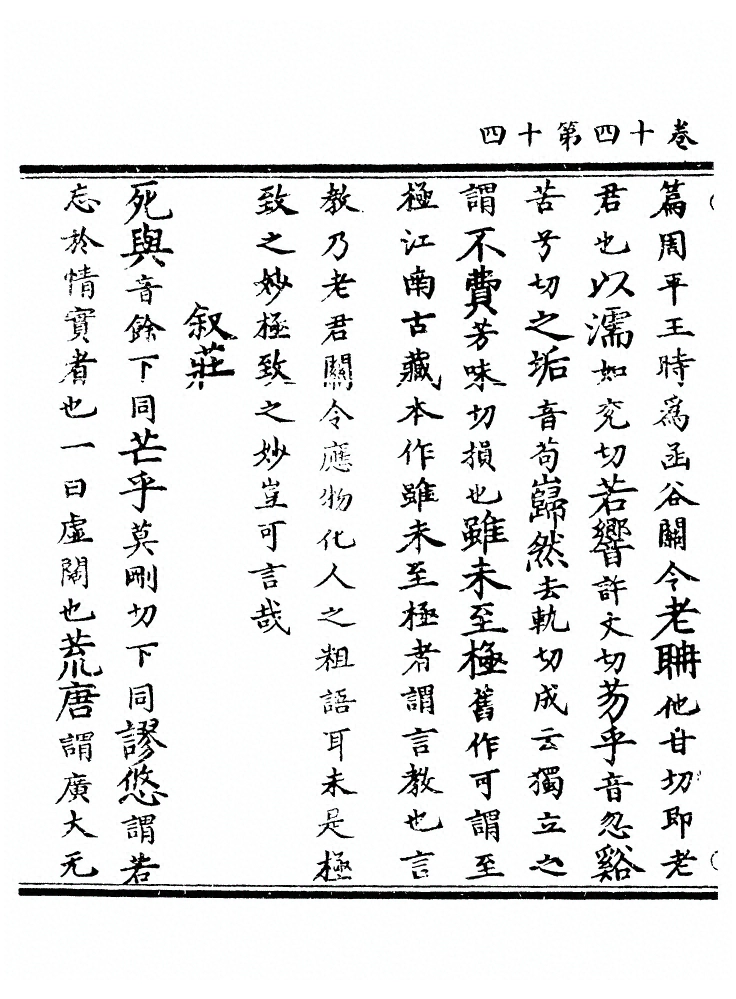 卷十四第十四
篇周平王時爲函谷關令老聃他甘切即老
君也以濡如兖切若響許丈切芴乎音忽谿
苦兮切之垢音苟巋然去軌切成云獨立之
謂不費芳味切損也雖未至極舊作可謂至
極江南古藏本作雖未至極者謂言教也言
教乃老君關令應物化人之粗語耳未是極
致之妙極致之妙豈可言哉
叙莊
死與音餘下同芒乎莫剛切下同謬悠謂若
忘於情實者也一曰虛闊也荒唐謂廣大无